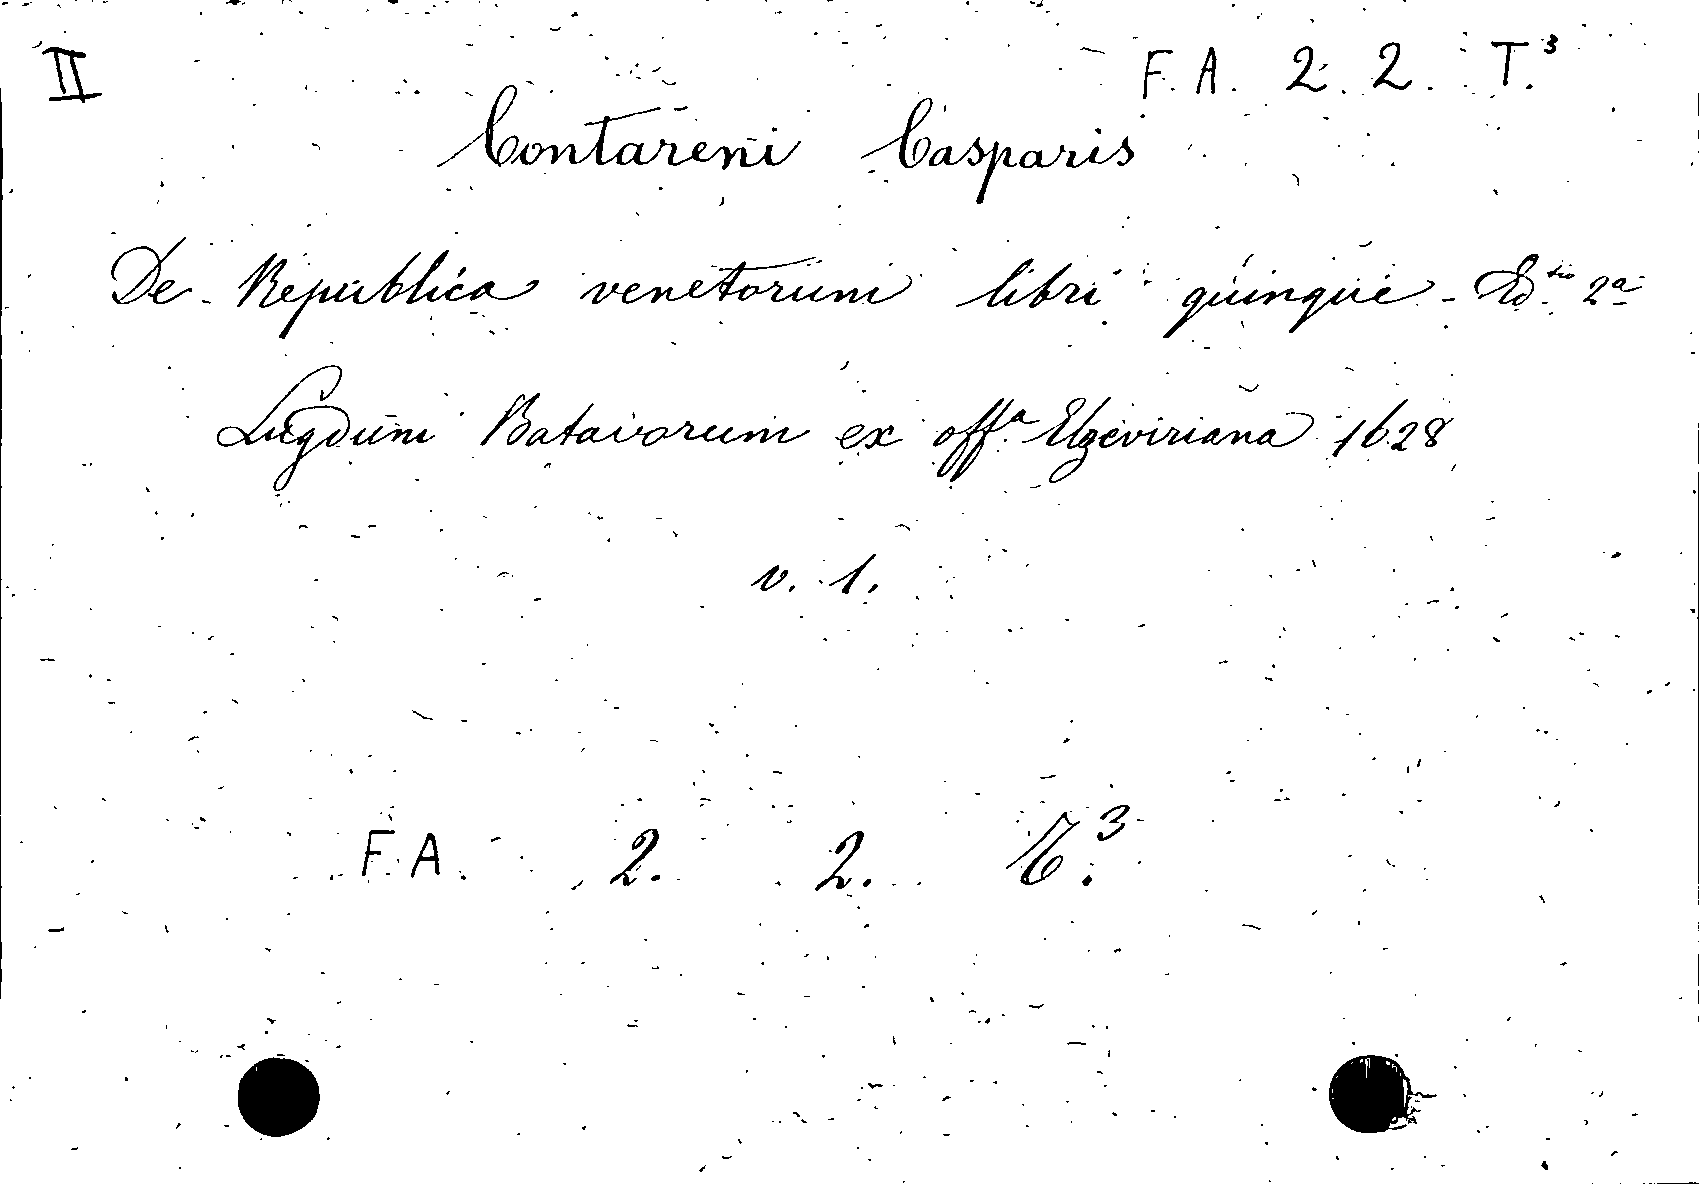 II F. A. 2. 2. T.³
Contareni Casparis
De Republica venetorum libri quinque - Ed.tio 2a
Lugduni Batavorum ex off.a Elzeviriana 1628
v. 1.
F. A. 2. 2. T.³